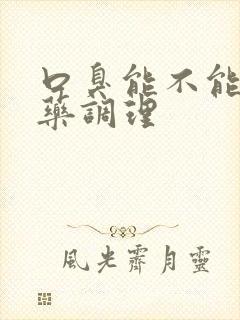 口臭能不能
藥調理
風光霽月靈